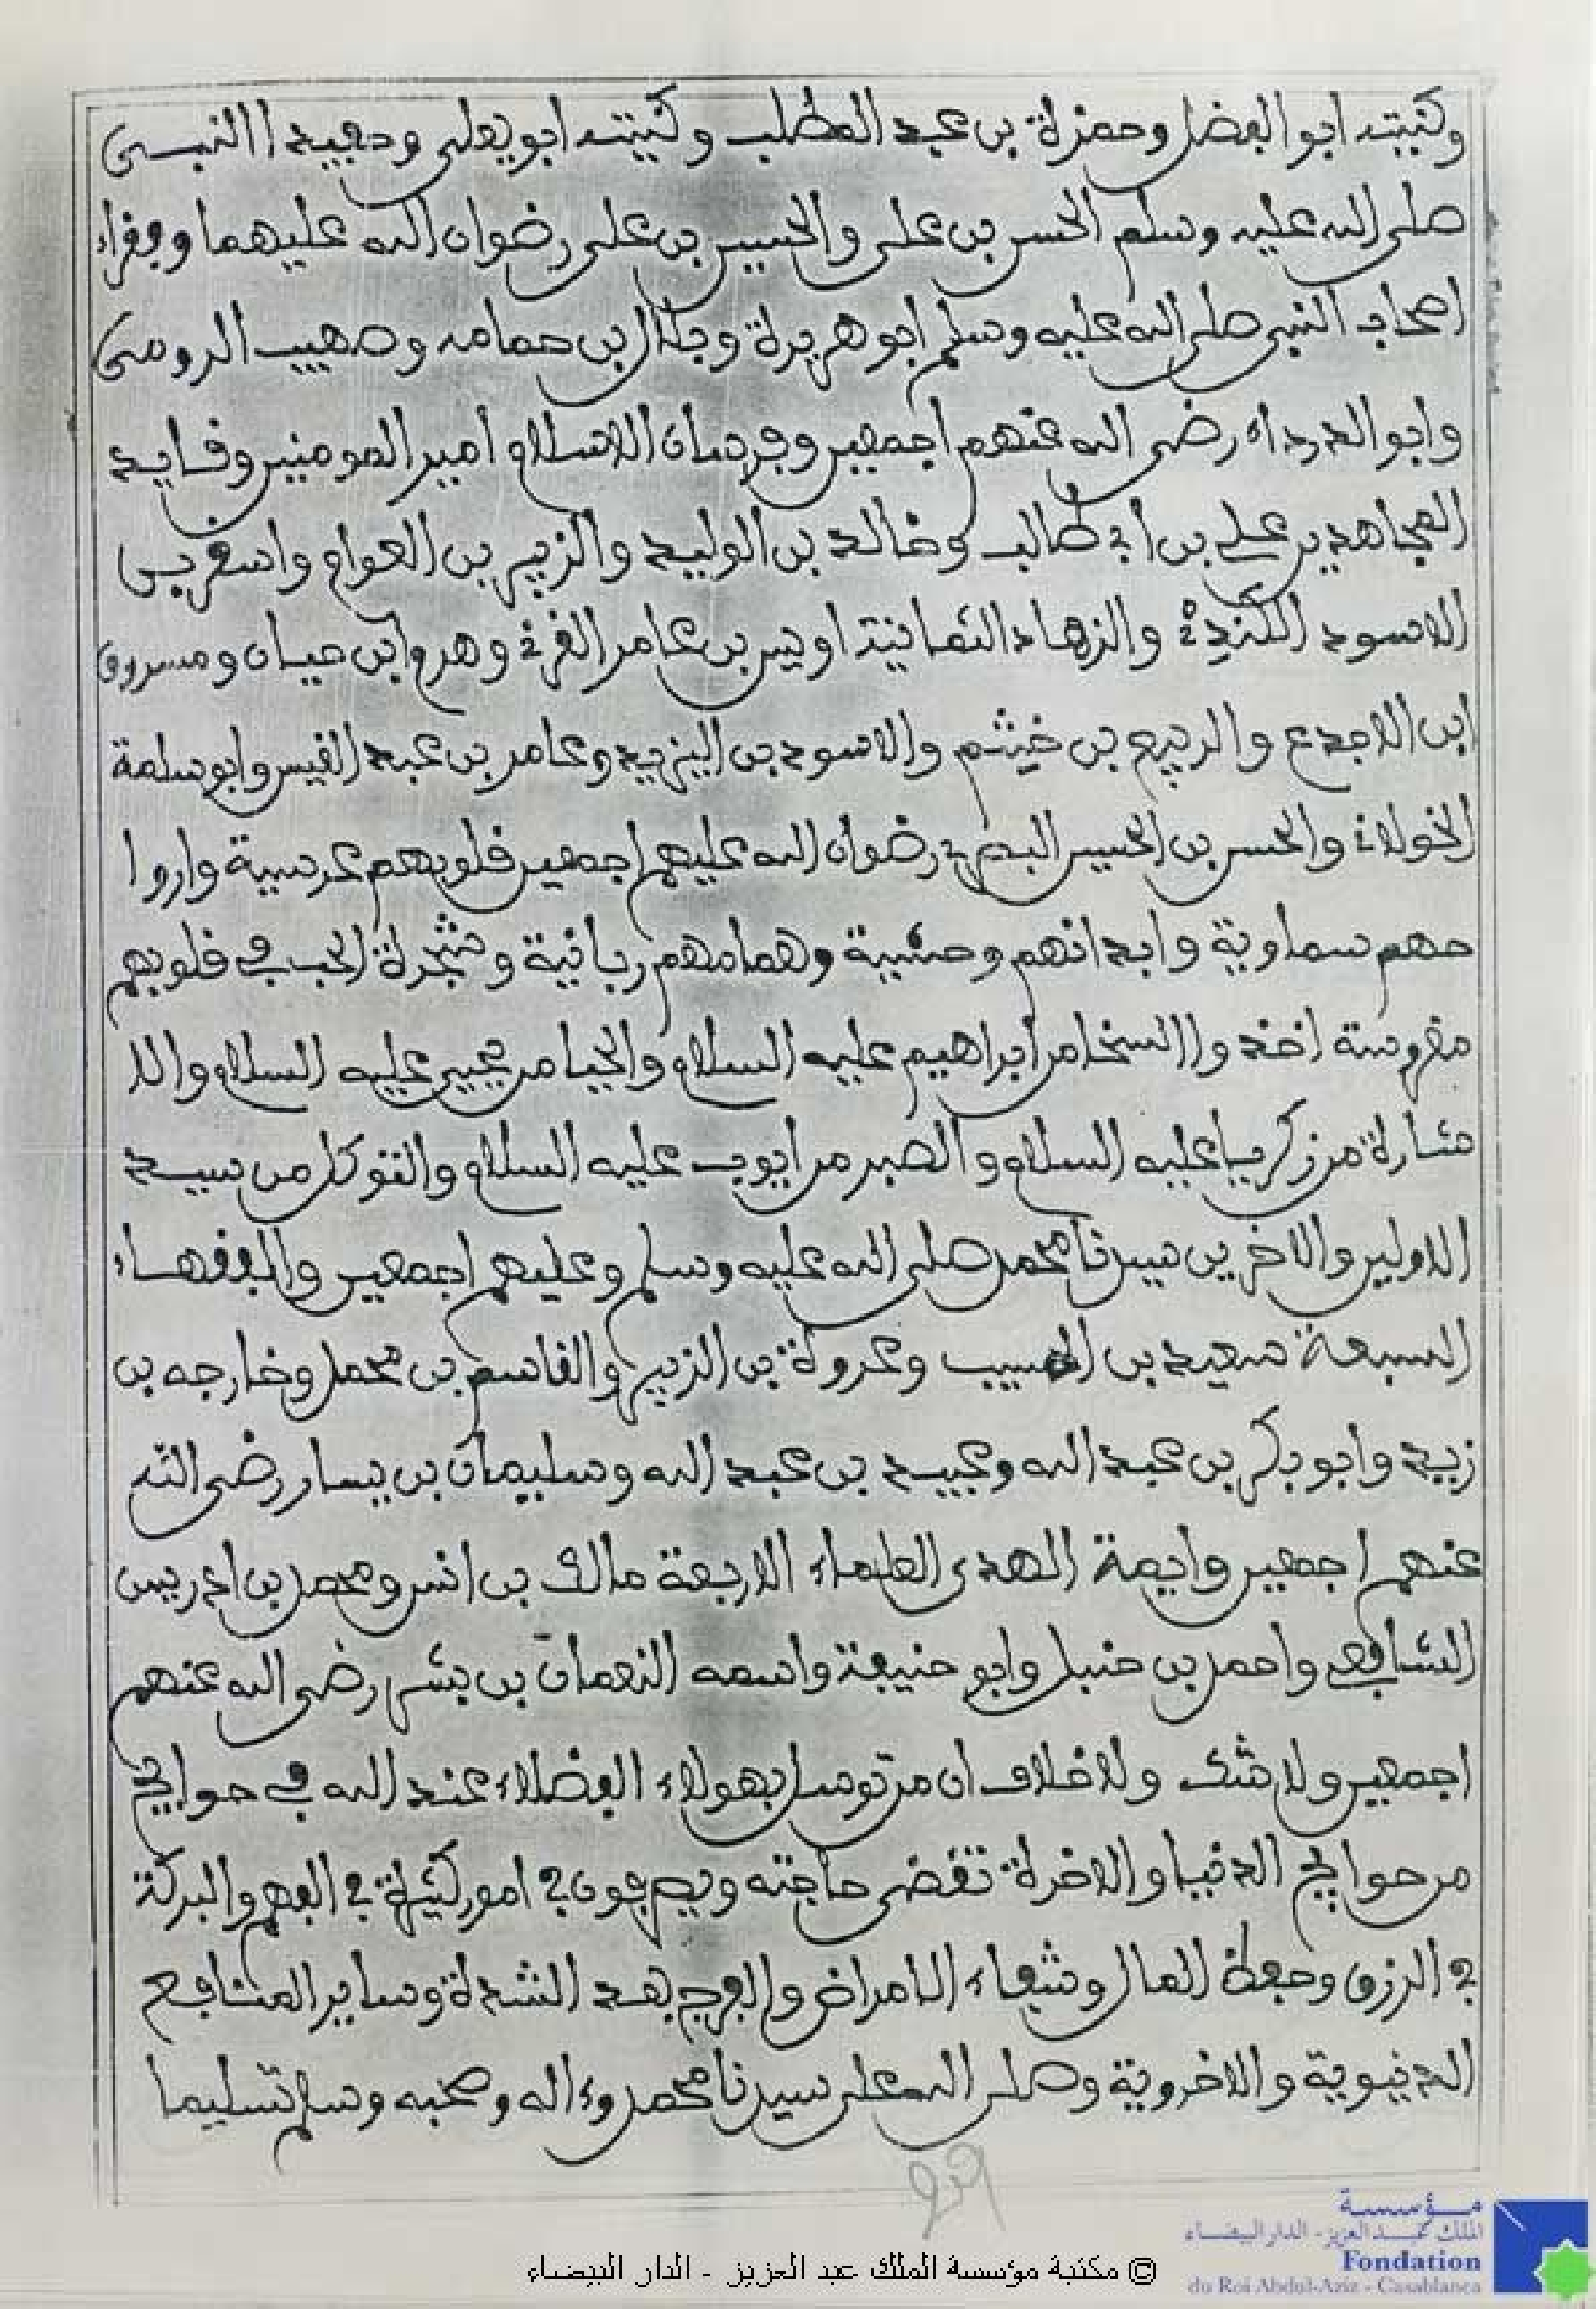 وكنيته ابو الفضل وحمزة بن عبد المطلب وكنيته ابو يعلى وحفيد االنبسى
صلى الله عليه وسلم الحسن بن على والحسين بن على رضوان الله عليهما وفقراء
اصحاب النبى صلى الله عليه وسلم ابو هريرة وبلال بن حمامه وصهيب الرومى
وابو الدرداء رضى الله عنهم اجمعين وفرسان الاسلام امير المومنين وقايد
المجاهدين على بن ابى طالب وخالد بن الوليد والزبير بن العوام واسعر بن
الاسود الكندى والزهاد الثمانية اويس بن عامر القرنى وهرم ابن حيان ومسروق
ابن الاجدع والربيع بن خيثم والاسود بن اليزيد وعامر بن عبد القيس وابو سلمة
الخولانى والحسن بن الحسين البصرى رضوان الله عليهم اجمعين قلوبهم عرسية واروا
حهم سماوية وابدانهم وحشية وهمامهم ربانية وشجرة الحب في قلوبهم
مغروسة اخذ واالسخا من ابراهيم عليه السلام والحيا من يحيى عليه السلام والا
شارة من زكريا عليه السلام والصبر من ايوب عليه السلام والتوكل من سيد
الاولين والاخرين سيدنا محمد صلى الله عليه وسلم وعليهم اجمعين والفقهاء
السبعة سعيد بن المسيب وعروة بن الزبير والقاسم بن محمد وخارجه بن
زيد وابو بكر بن عبد الله وعبيد بن عبد الله وسليمان بن يسار رضى الله
عنهم اجمعين وايمة الهدى العلماء الاربعة مالك بن انس ومحمد بن ادريس
الشافعى واحمد بن حنبل وابو حنيفة واسمه النعمان بن بشر رضى الله عنهم
اجمعين ولا شك ولا خلاف ان من توسل بهولاء الفضلاء عند الله في حوايج
من حوايج الدنيا والاخرة تقضى حاجته ويصرفون في امور كثيرة في الفهم والبركة
في الرزق وحفظ المال وشفاء الامراض والفرج بعد الشدة وساير المنافع
الدنيوية والاخروية وصلى الله على سيدنا محمد وءاله وصحبه وسلم تسليما
مؤسسة
الملك عبد العزيز - الدار البيضاء
Fondation
du Roi Abdul-Aziz - Casablanca
© مكتبة مؤسسة الملك عبد العزيز - الدار البيضاء